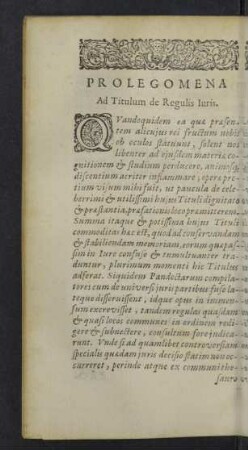 PROLEGOMENA
Ad Titulum de Regulis Iuris.
QVandoquidem ea quæ præsen-
tem alicuius rei fructum nobis
ob oculos statuunt, solent nos
libenter ad eiusdem materiæ co-
gnitionem & studium perducere, animosq;
discentium acriter inflammare, operæ pre-
tium visum mihi fuit, ut paucula de cele-
berrimi & utilissimi huius Tituli dignitate
& præstantia, præfationis loco præmitterem.
Summa itaque & potissima huius Tituli
commoditas hæc est, quod ad conservandam
& stabiliendam memoriam, eorum quæ pas-
sim in Iure confuse & tumultuanter tra-
duntur, plurimum momenti hic Titulus
adferat. Siquidem Pandectarum compila-
tores cum de universi juris partibus fuse la-
teque disseruissent, idque opus in immen-
sum excrevisset, tandem regulas quasdam
& quasi locos communes in ordinem redi-
gere & subnectere, consultum fore indica-
runt. Vnde si ad quamlibet controversiam
specialis quædam juris decisio statim non oc-
curreret, perinde atque ex communibus